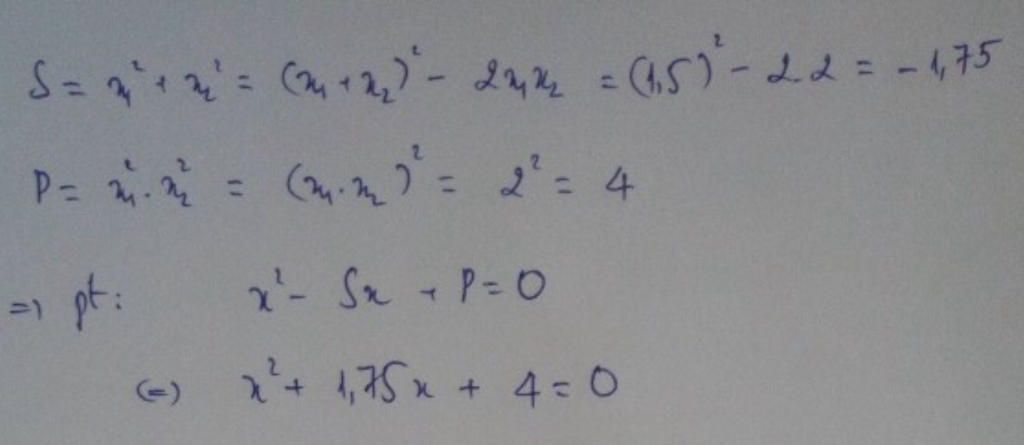 S = x₁² + x₂² = (x₁ + x₂)² - 2x₁x₂ = (1,5)² - 2.2 = -1,75
P = x₁² . x₂² = (x₁.x₂)² = 2² = 4
=> pt: x² - Sx + P = 0
(=) x² + 1,75x + 4 = 0